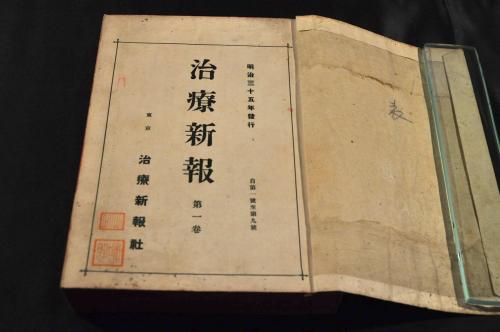 明治三十五年發行
自第一號至第九號
治療新報
第一卷
東京
治療新報社